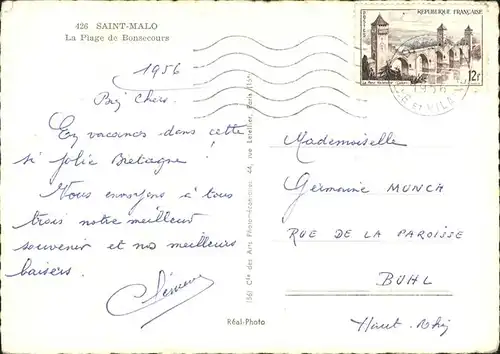 426 SAINT-MALO
La Plage de Bonsecours
1956
Chers
En vacances dans cette
si jolie Bretagne !
Nous envoyons à tous
trois notre meilleur
souvenir et nos meilleurs
baisers.
(56) Cie des Arts Photomécaniques 44, rue Letellier, Paris-15e
Réal-Photo
REPUBLIQUE FRANÇAISE
12f
1956
Mademoiselle
Germaine MUNCH
RUE DE LA PAROISSE
BUHL
Haut-Rhin